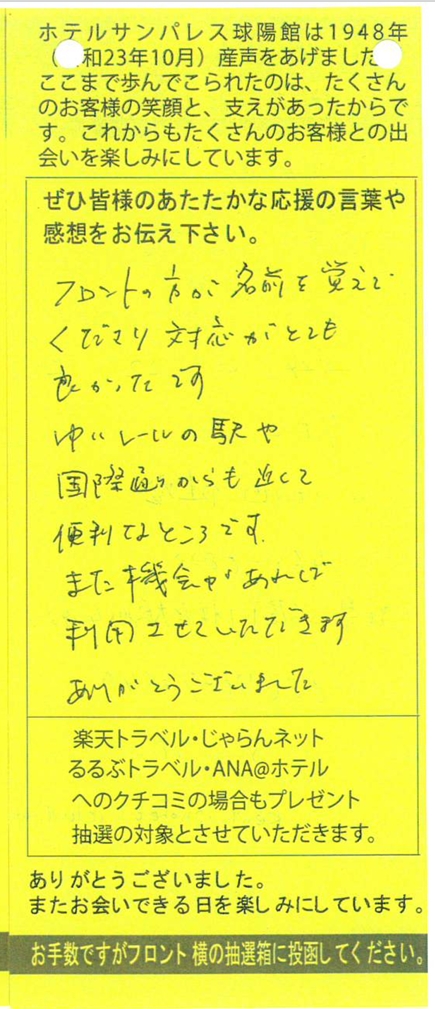 ホテルサンパレス球陽館は1948年
（和23年10月）産声をあげました
ここまで歩んでこられたのは、たくさん
のお客様の笑顔と、支えがあったからで
す。これからもたくさんのお客様との出
会いを楽しみにしています。
ぜひ皆様のあたたかな応援の言葉や
感想をお伝え下さい。
フロントの方が名前を覚えて
くださり対応がとても
良かったです
ゆいレールの駅や
国際通りからも近くて
便利なところです.
また機会があれば
利用させていただきます
ありがとうございました
楽天トラベル・じゃらんネット
るるぶトラベル・ANA@ホテル
へのクチコミの場合もプレゼント
抽選の対象とさせていただきます。
ありがとうございました。
またお会いできる日を楽しみにしています。
お手数ですがフロント横の抽選箱に投函してください。